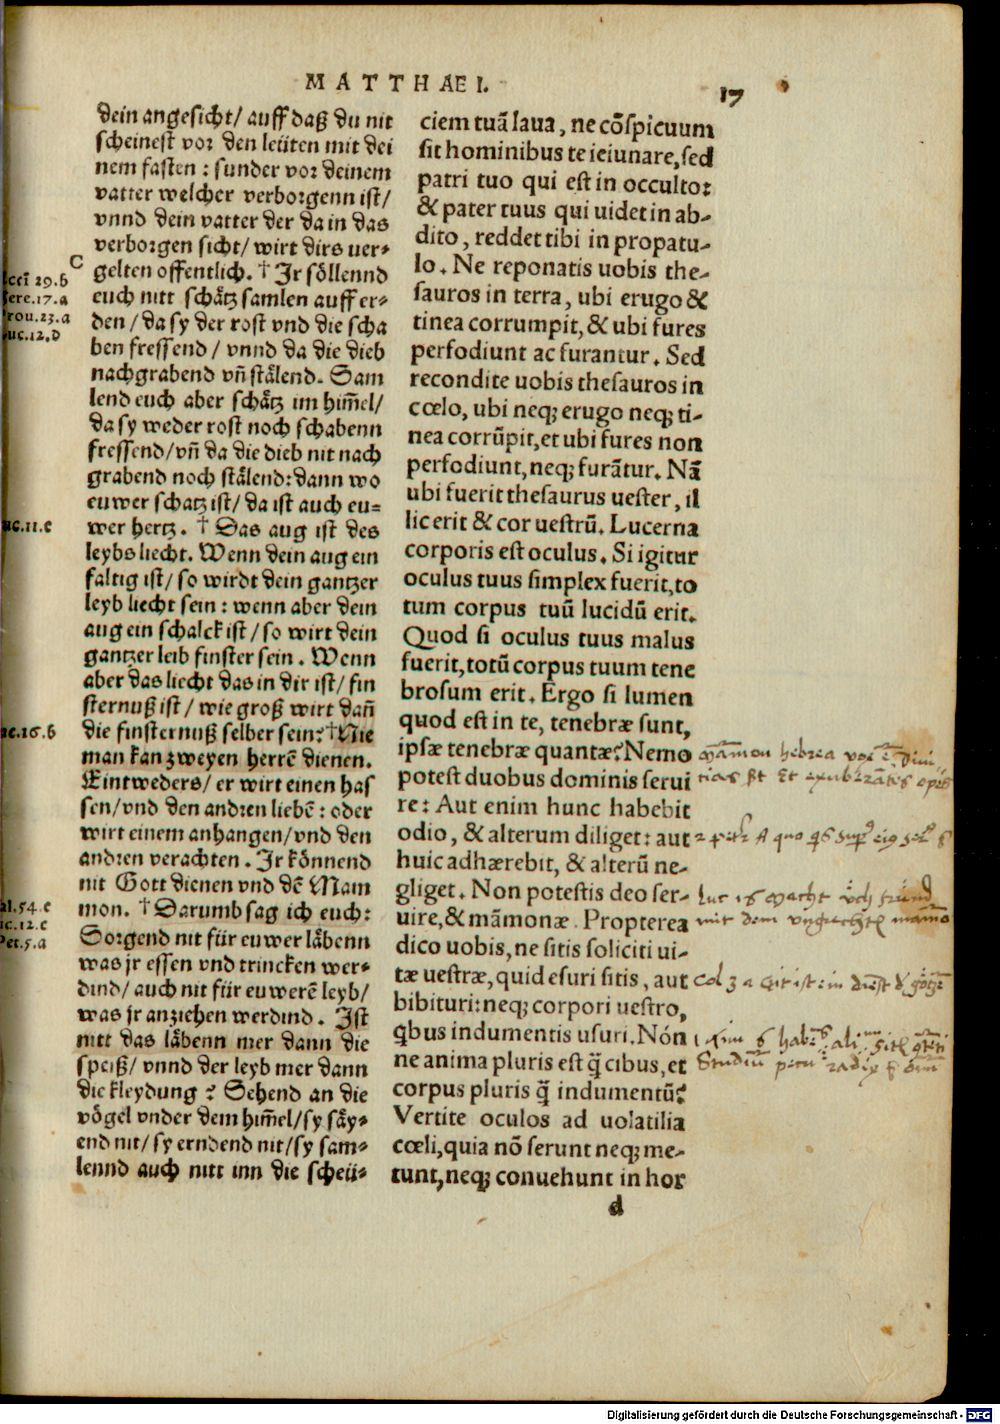 MATTHAEI.
17
dein angesicht/ auff daß du nit
scheinest vor den leüten mit dei
nem fasten : sunder vor deinem
vatter welcher verborgenn ist/
vnnd dein vatter der da in das
verborgen sicht/ wirt dirs ver-
gelten offentlich. † Jr söllennd
euch nitt schätz samlen auff er-
den / da sy der rost vnd die scha
ben fressend / vnnd da die dieb
nachgrabend vñ stälend. Sam
lend euch aber schätz im him̃el/
da sy weder rost noch schabenn
fressend/ vñ da die dieb nit nach
grabend noch stälend: dann wo
euwer schatz ist/ da ist auch eu=
wer hertz. † Das aug ist des
leybs liecht. Wenn dein aug ein
faltig ist/ so wirdt dein gantzer
leyb liecht sein : wenn aber dein
aug ein schalck ist / so wirt dein
gantzer leib finster sein . Wenn
aber das liecht das in dir ist/ fin
sternuß ist/ wie groß wirt dañ
die finsternuß selber sein? † Nie
man kan zweyen herrē dienen.
Eintweders/ er wirt einen has
sen/ vnd den andren liebē : oder
wirt einem anhangen/ vnd den
andren verachten . Jr könnend
nit Gott dienen vnd dē Mam
mon. † Darumb sag ich euch:
Sorgend nit für euwer läbenn
was jr essen vnd trincken wer-
dind/ auch nit für euwerē leyb/
was jr anziehen werdind . Ist
nitt das läbenn mer dann die
speiß/ vnnd der leyb mer dann
die kleydung ? Sehend an die
vögel vnder dem him̃el/ sy säy-
end nit/ sy erndend nit/ sy sam-
lennd auch nitt inn die scheü-
C
29.b
17.a
23.a
uc.12.d
uc.11.e
16.b
54.c
12.c
5.a
ciem tuã laua, ne cõspicuum
sit hominibus te ieiunare, sed
patri tuo qui est in occulto:
& pater tuus qui uidet in ab-
dito, reddet tibi in propatu-
lo. Ne reponatis uobis the-
sauros in terra, ubi erugo &
tinea corrumpit, & ubi fures
perfodiunt ac furantur. Sed
recondite uobis thesauros in
cœlo, ubi neq; erugo neq; ti-
nea corrũpit, et ubi fures non
perfodiunt, neq; furãtur. Nã
ubi fuerit thesaurus uester, il
lic erit & cor uestrũ. Lucerna
corporis est oculus. Si igitur
oculus tuus simplex fuerit, to
tum corpus tuũ lucidũ erit.
Quod si oculus tuus malus
fuerit, totũ corpus tuum tene
brosum erit. Ergo si lumen
quod est in te, tenebræ sunt,
ipsæ tenebræ quantæ? Nemo
potest duobus dominis serui
re: Aut enim hunc habebit
odio, & alterum diliget: aut
huic adhærebit, & alterũ ne-
gliget. Non potestis deo ser-
uire, & mãmonæ. Propterea
dico uobis, ne sitis soliciti ui-
tæ uestræ, quid esuri sitis, aut
bibituri: neq; corpori uestro,
q̃bus indumentis usuri. Nón
ne anima pluris est q̃ cibus, et
corpus pluris q̃ indumentũ?
Vertite oculos ad uolatilia
cœli, quia nõ serunt neq; me-
tunt, neq; conuehunt in hor
d
hebrea
luc 16 macht
mit dem
Col 3
radix
Digitalisierung gefördert durch die Deutsche Forschungsgemeinschaft - DFG